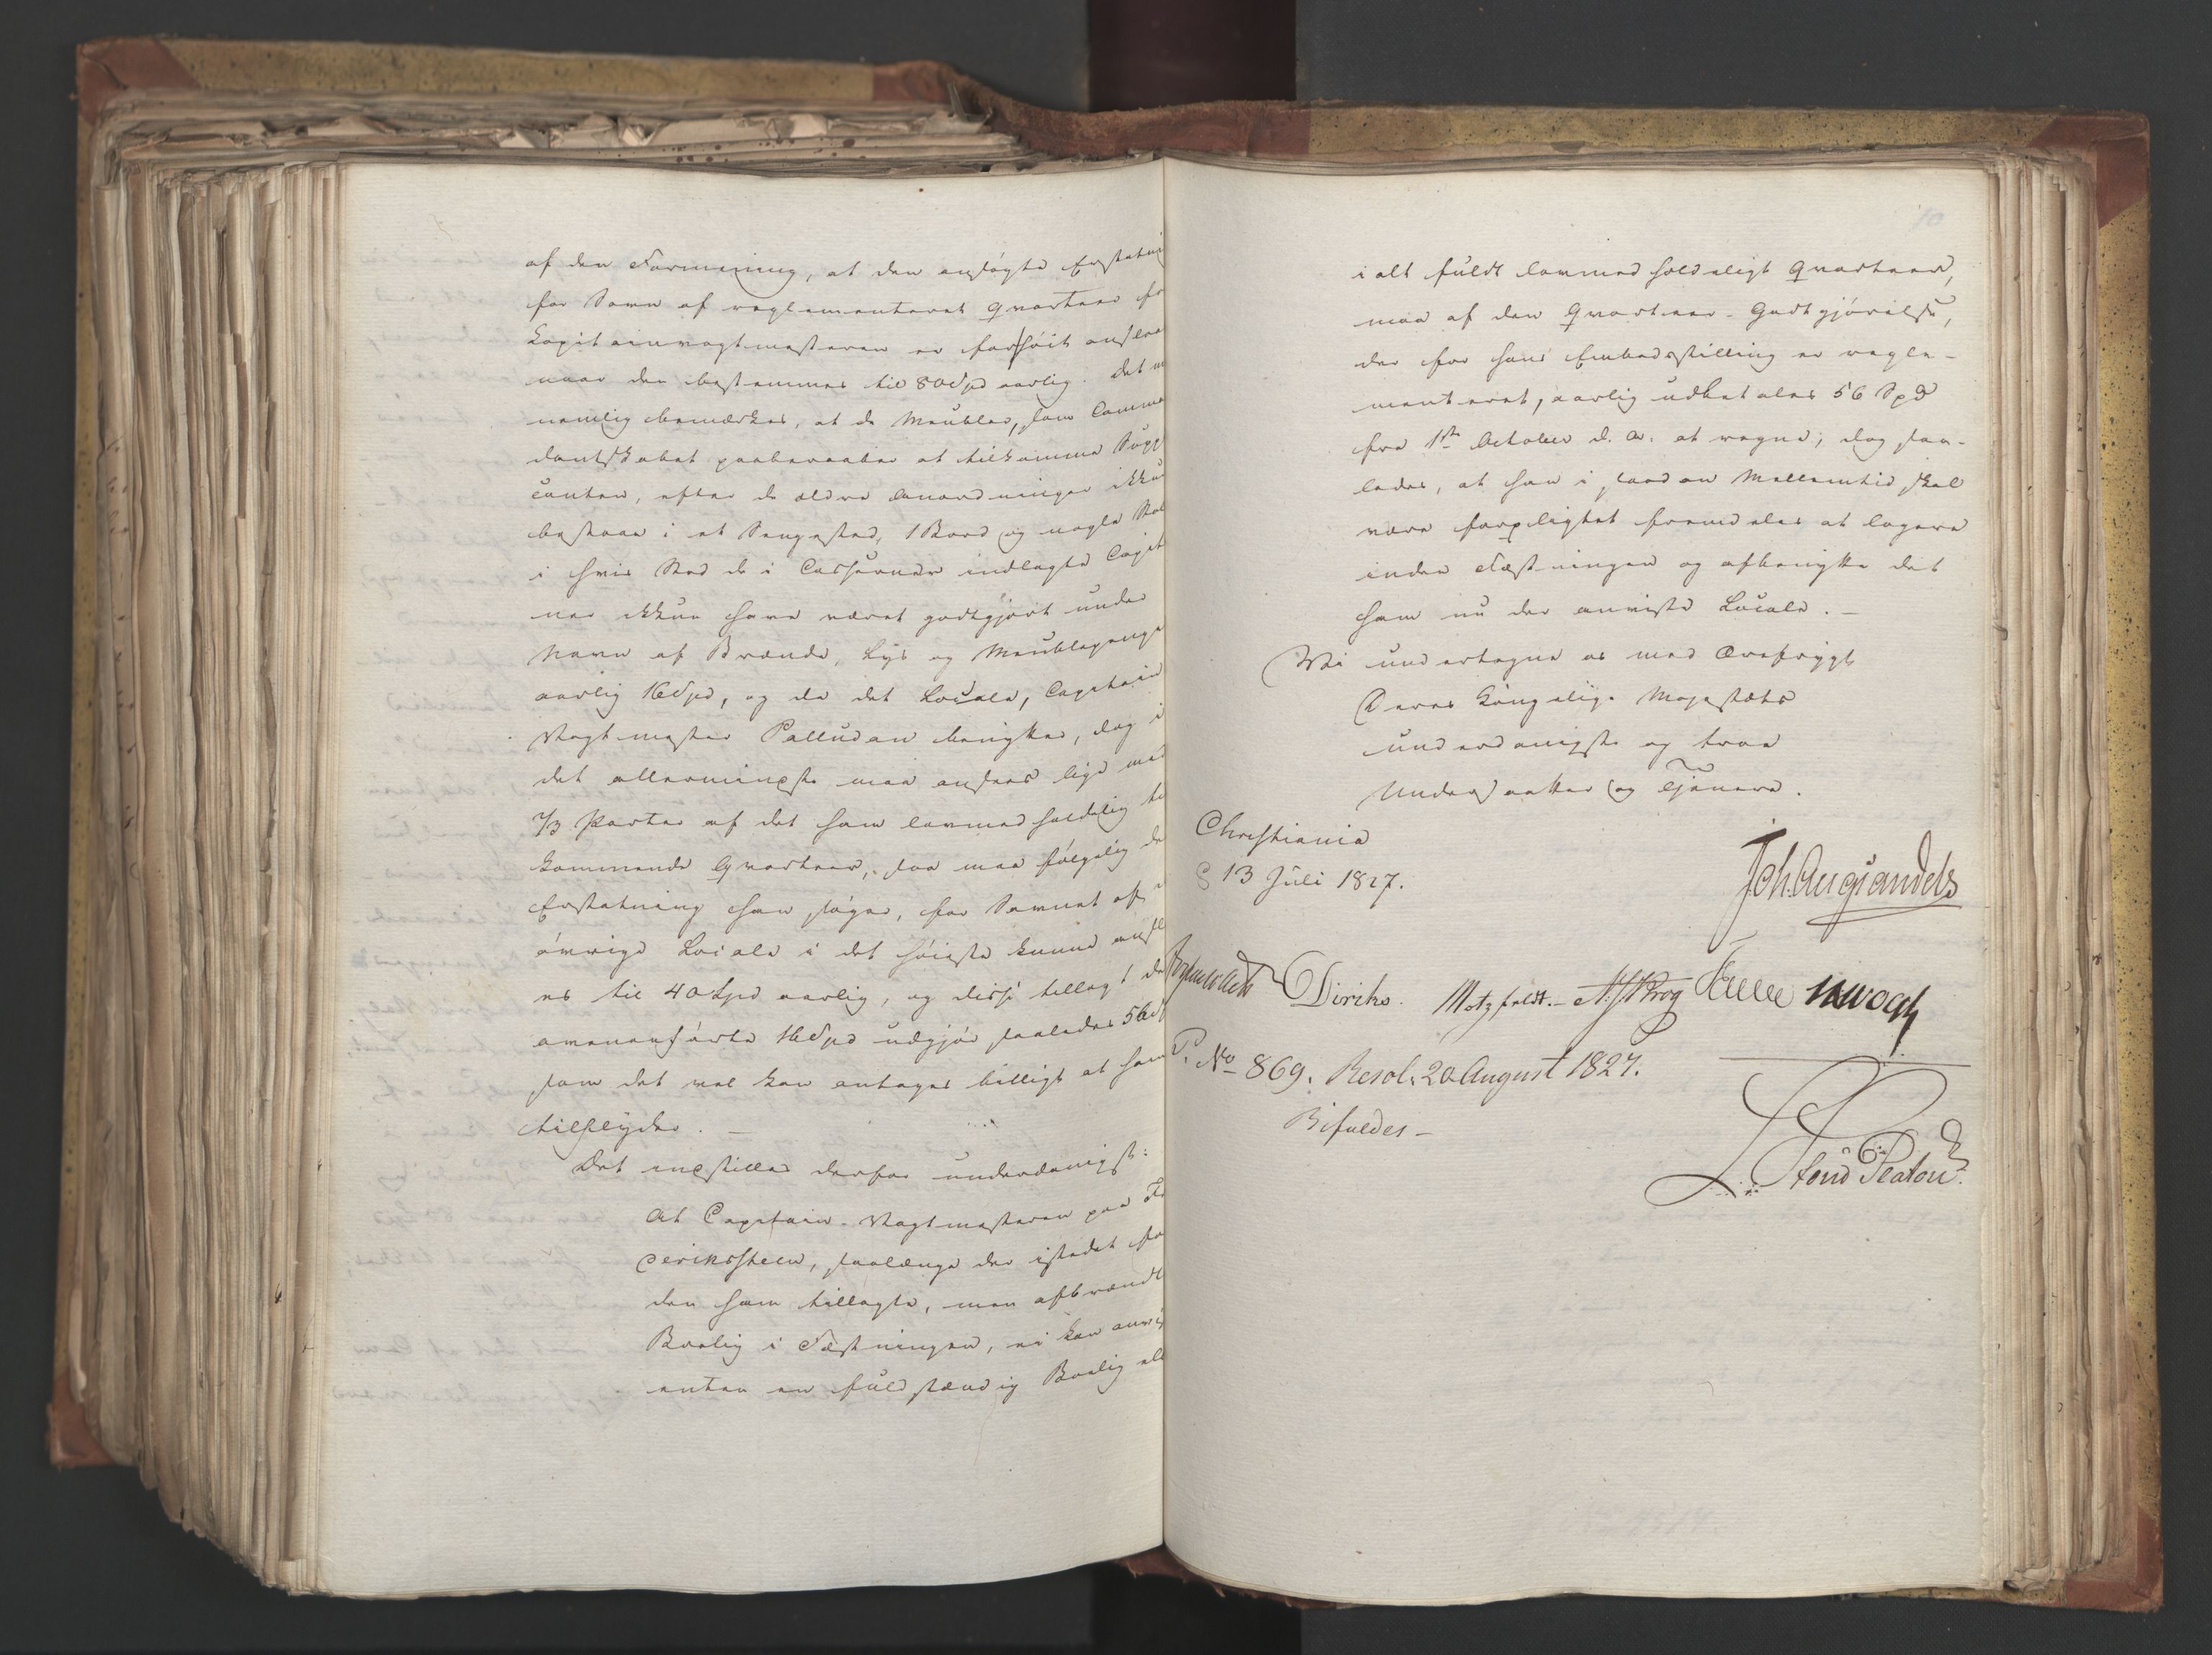 af den Formening, at den ansøgte Erstatni
for Savn af reglementeret Qvarteer fo
Capitainvagtmesteren er forhöit ansee
naar den bestemmes til 80 Spd aarlig. Det m
nemlig bemærkes, at de Meubler, som Comma
dantskabet paaberaaber at tilkomme Supp
canten, efter de ældre Anordninger ikku
bestaae i et Sengested, 1 Bord og nogle Stol
i hvis Sted de i Casserner indlagte Capit
ner ikkun have været godtgjort under
Navn af Brænde, Lys og Meublepenge
aarlig 16 Spd, og da det Locale, Capitain
Vagtmester Palludan benytter, dog i
det allermindste maa ansees lige med
2/3 Parter af det ham lovmedholdelig til
kommende Qvarteer, saa maa følgelig de
Erstatning han søger, for Savnet af
övrige Locale i det höieste kunne ansæt
es til 40 Spd aarlig, og disse tillagt de
ovenanförte 16 Spd udgjör saaledes 56 S
som det vel kan antages billigt at ham
tilflyder. —
Det indstilles derfor underdanigst:
At Capitain-Vagtmesteren paa Fr
deriksteen, saalænge der istedet fo
den ham tillagte, men afbrændte
Bolig i Fæstningen, ei kan anvi
enten en fuldstændig Bolig ell
10
i alt fuldt lovmedholdeligt Qvarteer,
maa af den Qvarteer-Godtgjörelse,
der for hans Embedsstilling er regle-
menteret, aarlig udbetales 56 Spd
fra 1ste October d. A. at regne; dog saa-
ledes, at han i saadan Mellemtid skal
være forpligtet fremdeles at logere
inden Fæstningen og afbenytte det
ham nu der anviste Locale. —
Vi undertegne os med Ærefrygt
Deres Kongelige Majestæts
underdanigste og troe
Undersaatter og Tjenere.
Christiania
d 13 Juli 1827.
Joh. Aug. Sandels
Diriks. Motzfeldt. — Krog
P. No 869. Resol. 20 August 1827.
Bifaldes —